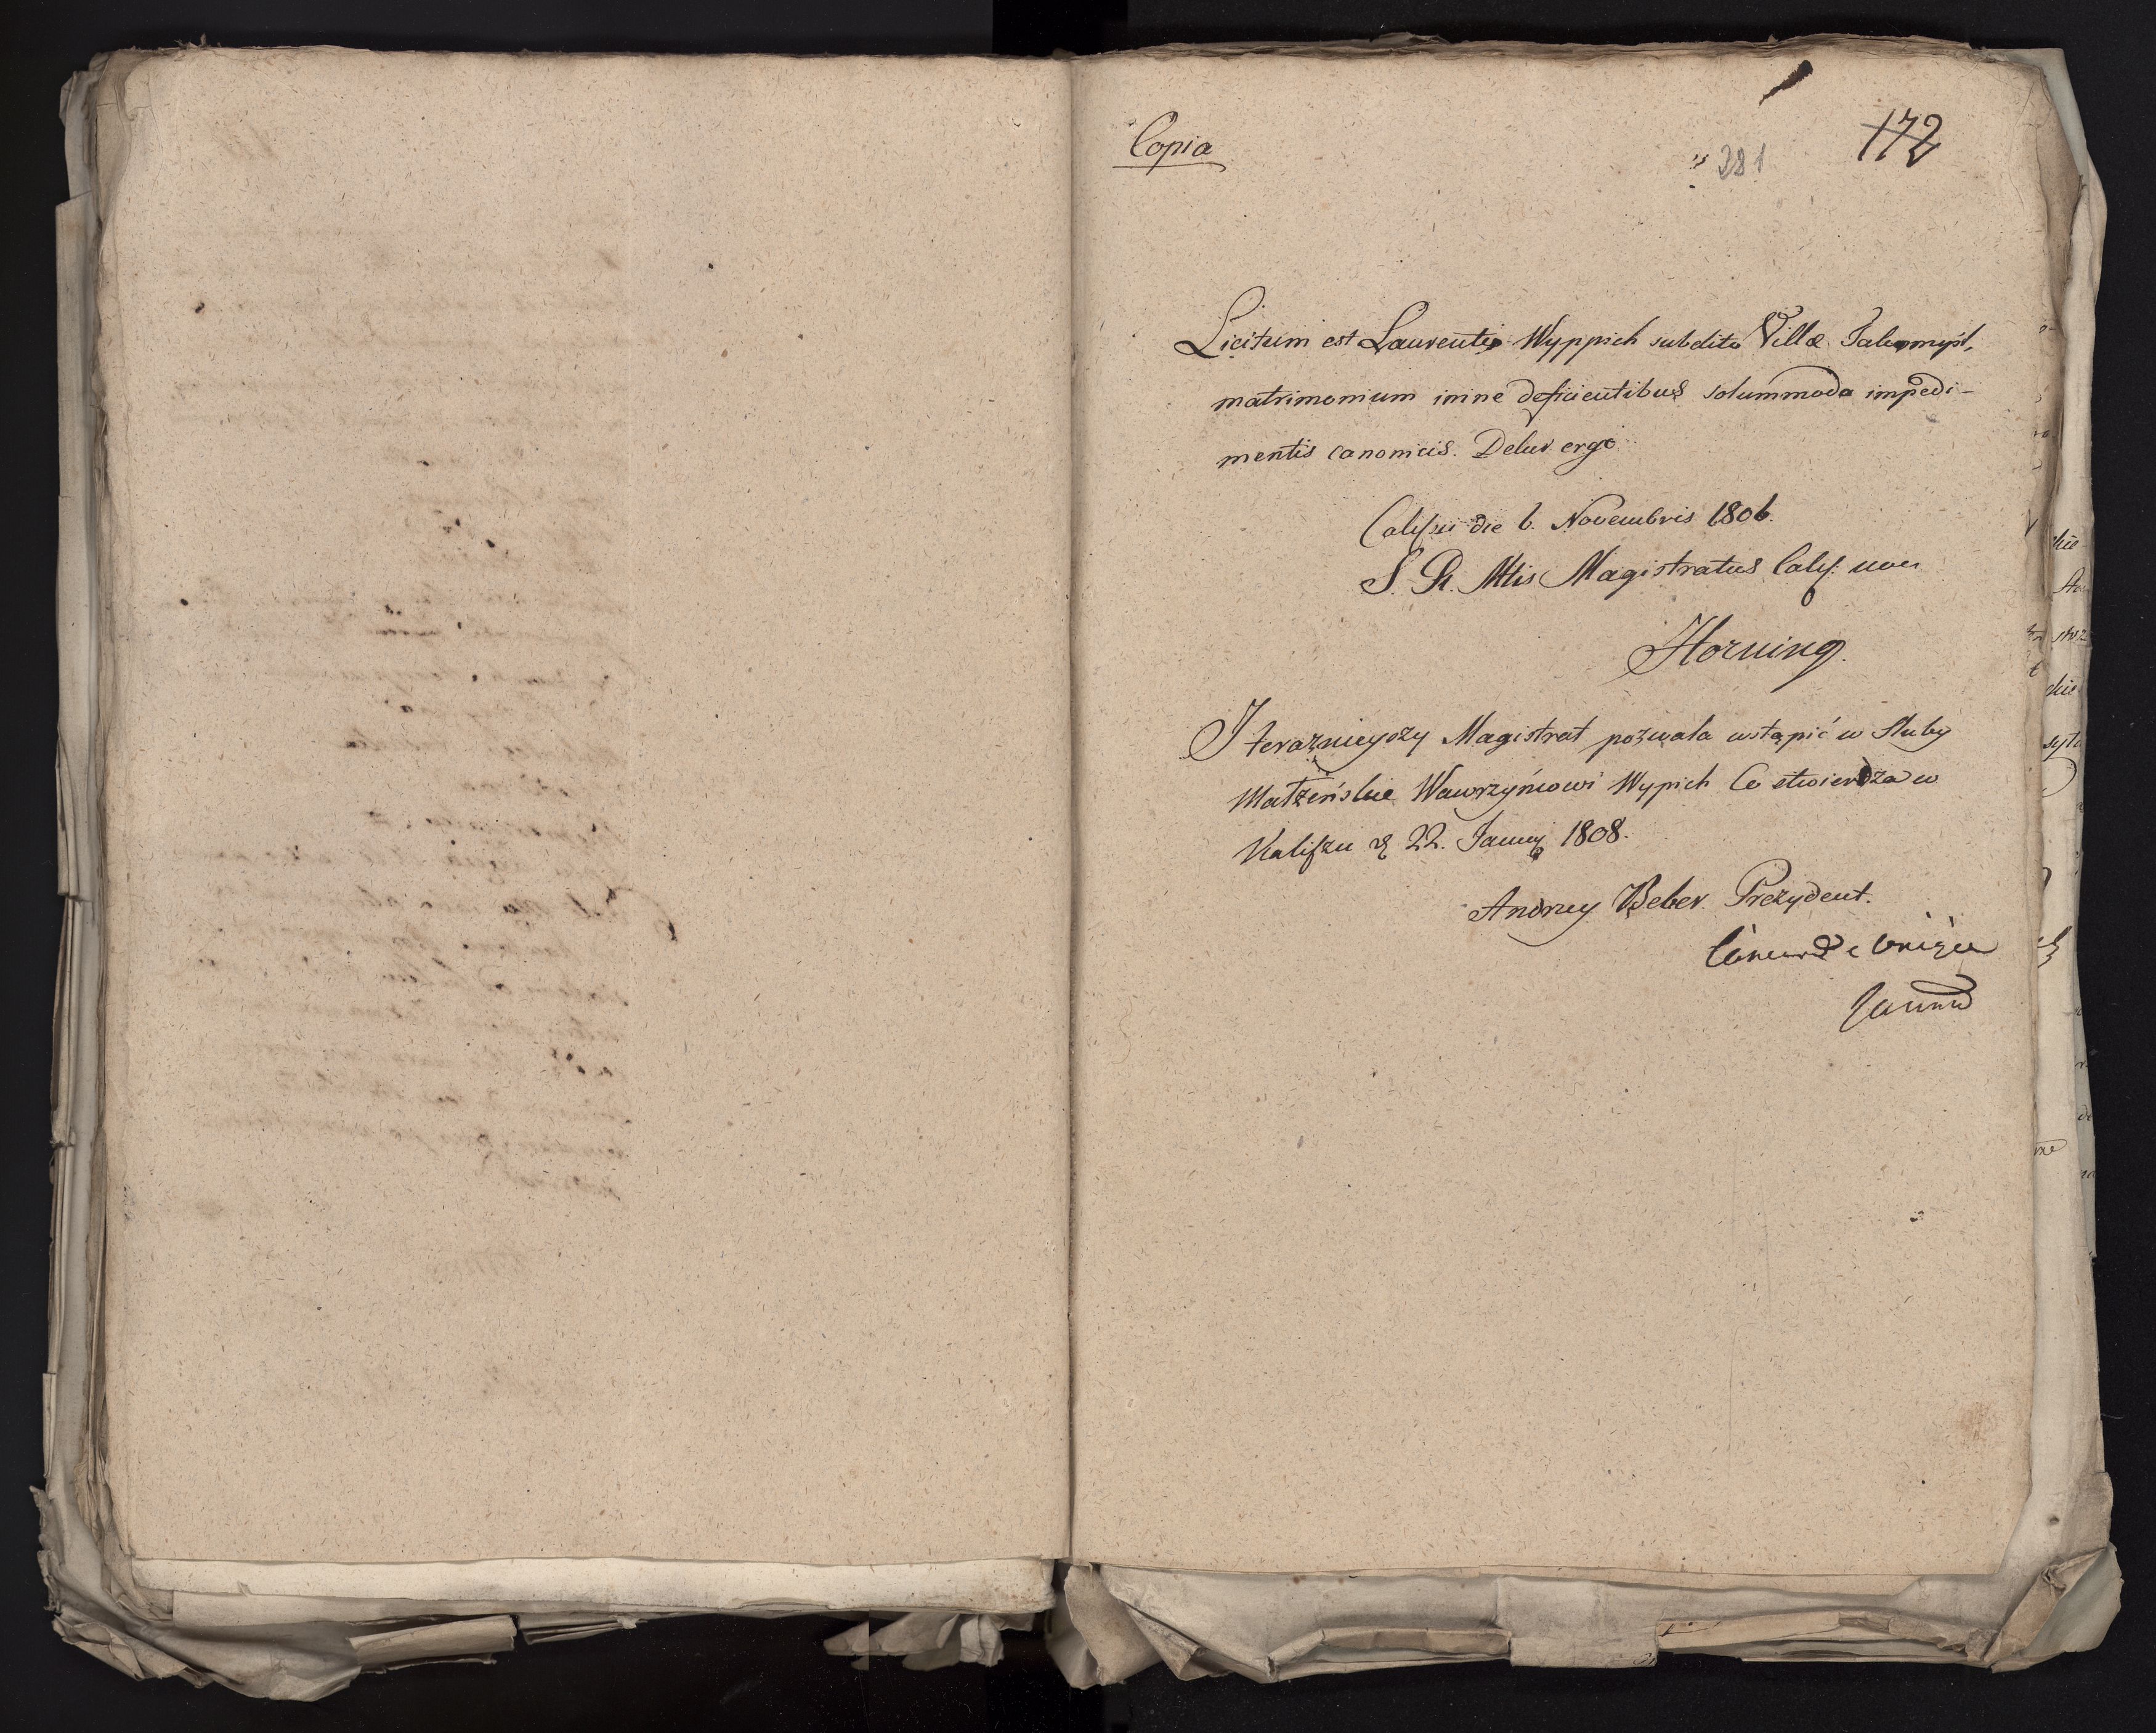 Copia
281
172
Licitum est Laurentio Wyppich subdito Villæ
matrimonium inire deficientibus solummodo impedi-
mentis canonicis. Detur ergo
Calissii die 6. Novembris 1806.
S. R. Mtis Magistratus Calis:
Horning.
I teraznieyszy Magistrat pozwala wstąpić w Sluby
Małżeńskie Wawrzyńcowi Wypich Co stwierdza w
Kaliszu d 22. January 1808.
Andrzey Beber. Prezydent.